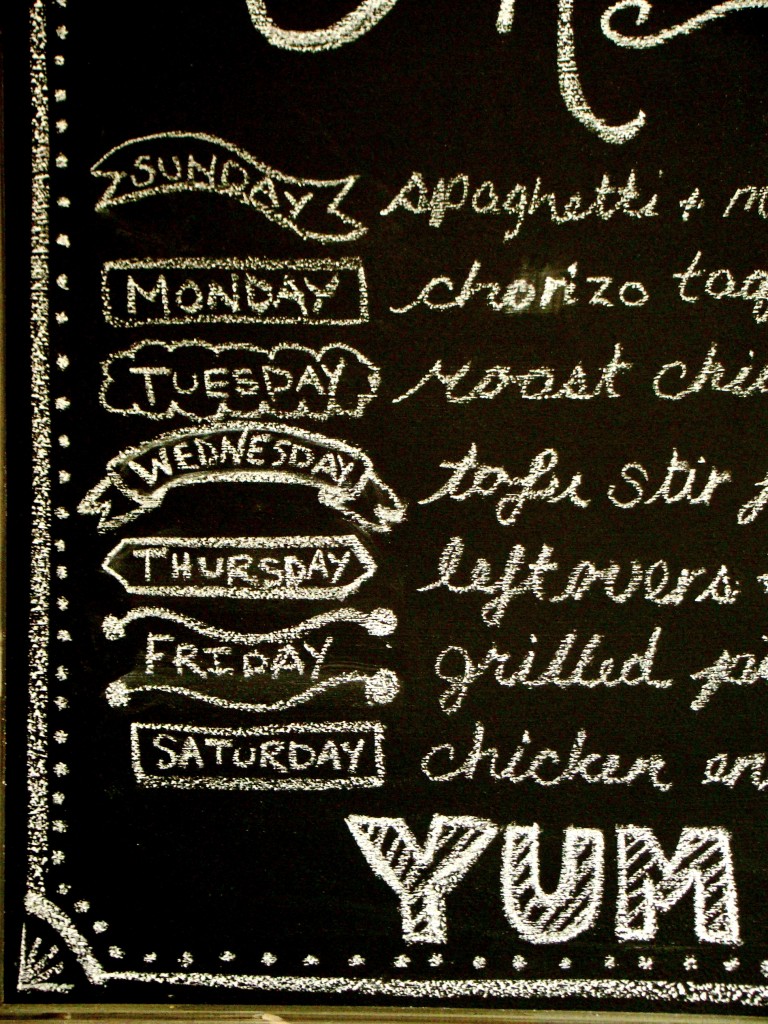 SUNDAY spaghetti + m
MONDAY chorizo taq
TUESDAY roast chic
WEDNESDAY tofu stir f
THURSDAY leftovers
FRIDAY grilled pi
SATURDAY chicken en
YUM